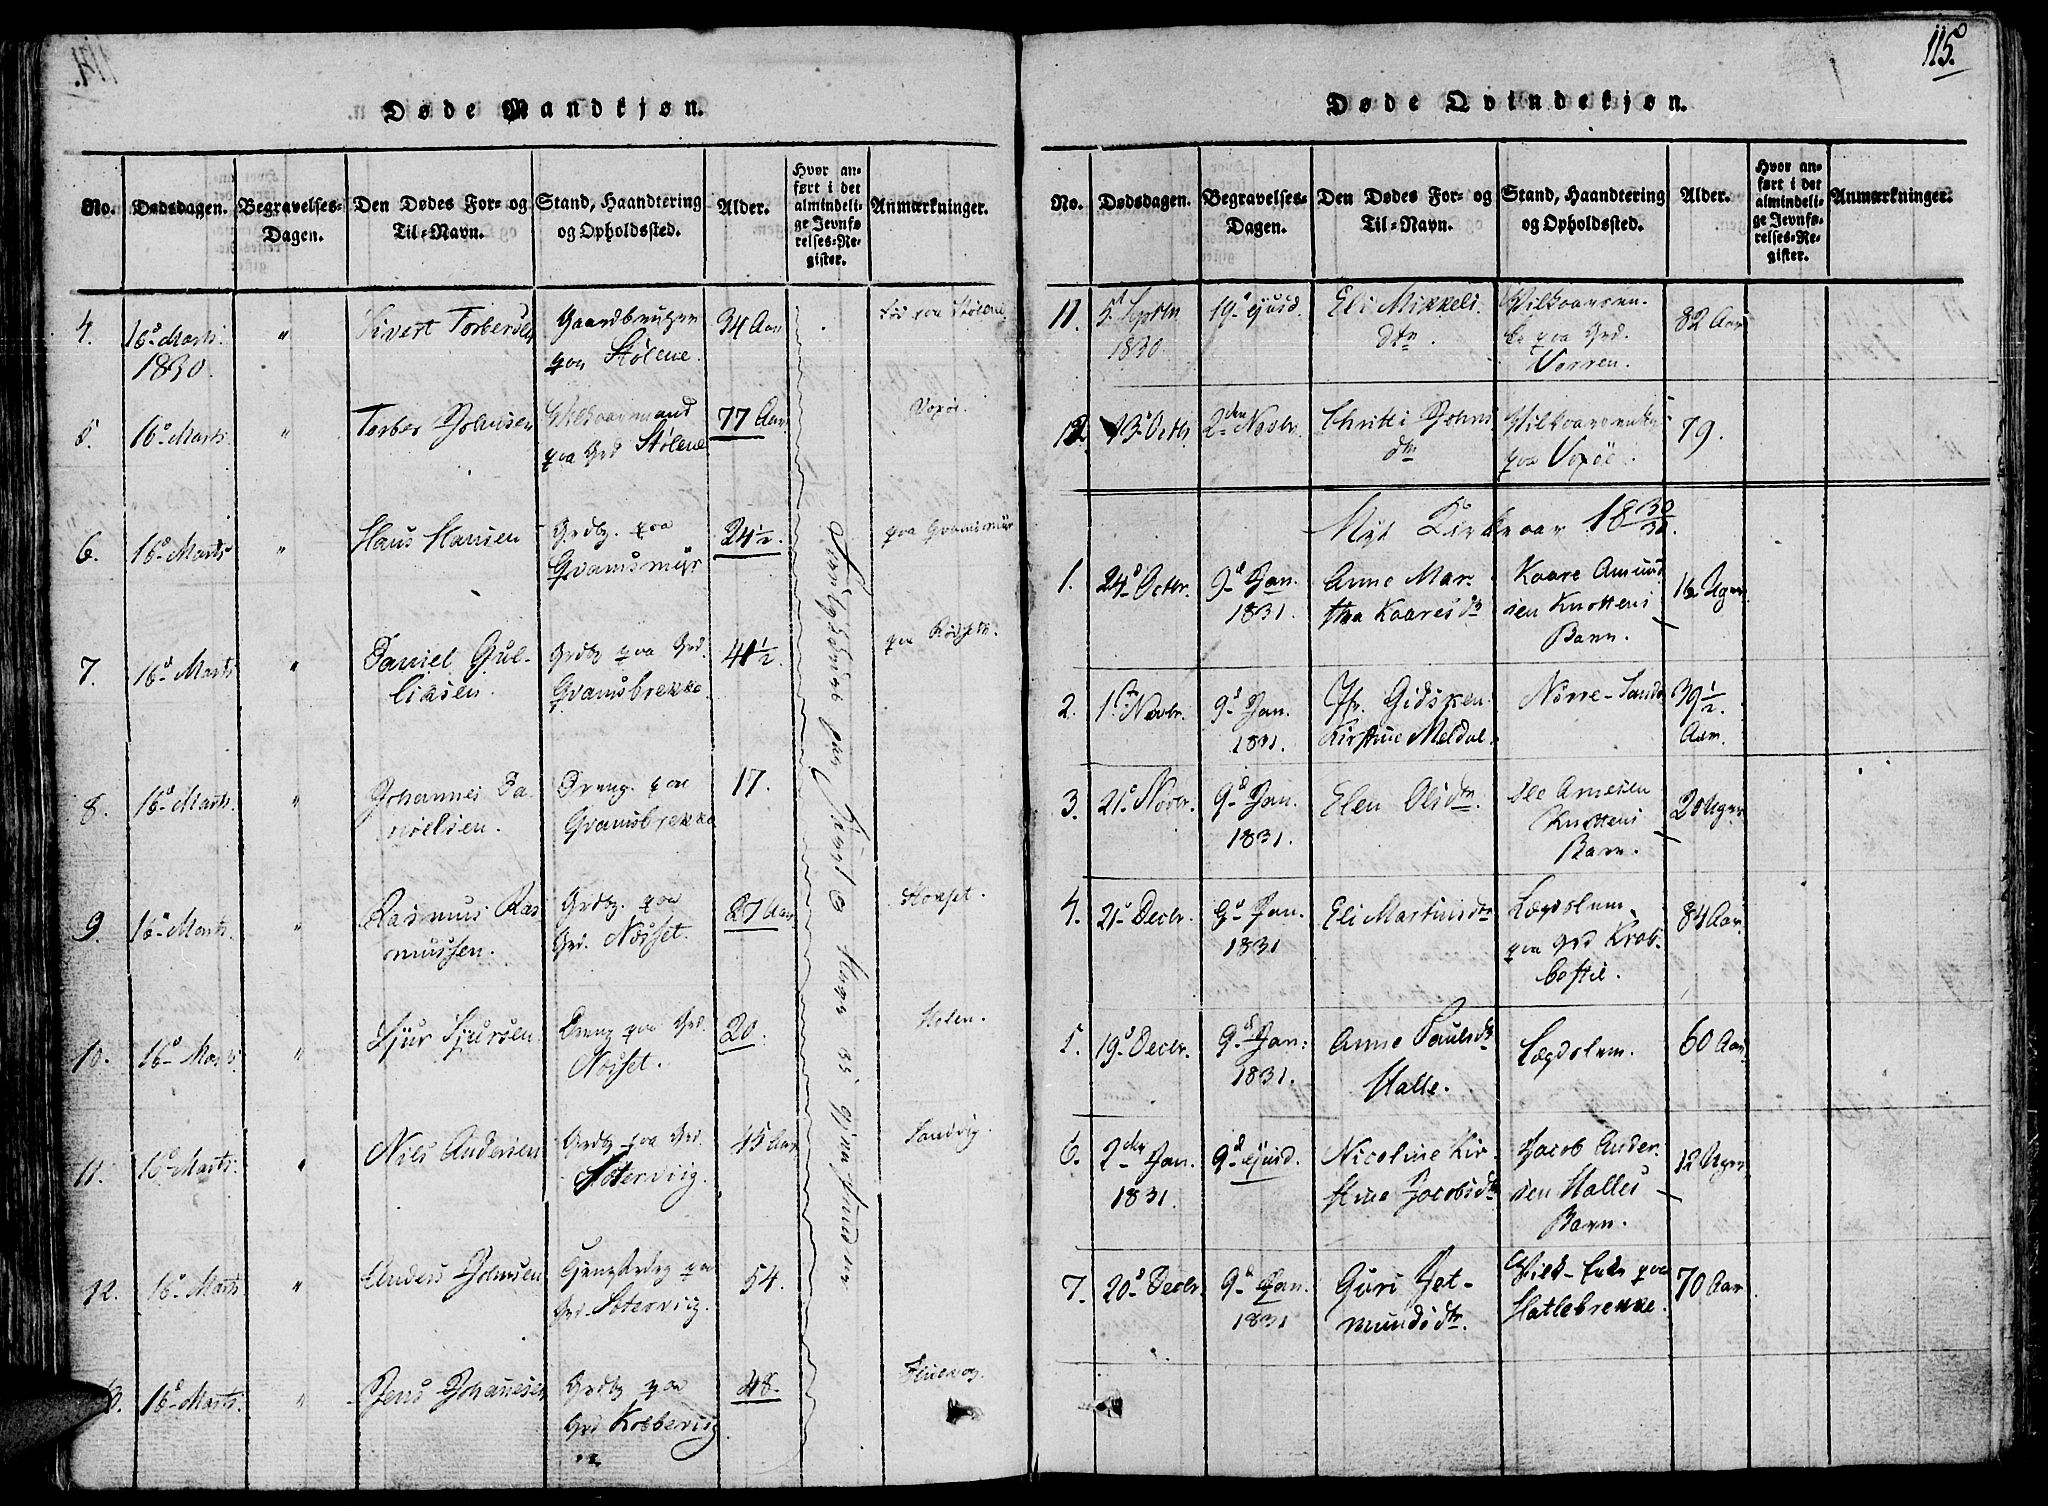 115.
Døde Mandkjøn.
No.
Dødsdagen.
Begravelses-
Dagen.
Den Dødes For- og
Til-Navn.
Stand, Haandtering
og Opholdssted.
Alder.
Hvor an-
ført i det
almindeli-
ge Jevnfø-
relses-Re-
gister.
Anmærkninger.
4.
16d Marts
1830.
"
Sivert Torbersen
Gaardbruger
paa Stølene.
34 Aar
5.
16d Marts.
"
Torber Johnsen
Vilkaarsmand
paa Grd Stølene
77 Aar
Voxøe.
6.
16d Marts
"
Hans Hansen
Grdbg. paa
Qvamsmyr
24½.
paa Qvamsmyr
7.
16d Marts
"
Daniel Gul-
liksen.
Grdbg paa Grd.
Qvamsbrekke.
41½.
8.
16d Marts.
"
Johannes Da-
nielsen.
Dreng. paa
Qvamsbrekke
17.
9.
16d Marts.
"
Rasmus Ras
mussen.
Grdbg. paa
Grd. Nosset.
27 Aar
10.
16d Marts.
"
Sjur Sjursen
Dreng paa Grd.
Nosset.
20.
Holen.
11.
16d Marts.
"
Nils Andersen
Grdbg paa Grd.
Sætervig.
45 Aar
Sandvig.
12.
16d Marts
"
Anders Johnsen
paa
Grd. Sætervig.
54.
13.
16d Marts.
"
Jens Johannesen
Grdbg paa
Grd Kobbervig
48.
Døde Qvindekjøn.
No.
Dødsdagen.
Begravelses-
Dagen.
Den Dødes For- og
Til-Navn.
Stand, Haandtering
og Opholdssted.
Alder.
Hvor an-
ført i det
almindeli-
ge Jevnfø-
relses-Re-
gister.
Anmærkninger.
11.
5d Septbr
1830.
19d ejusd.
Eli Mikkels
dtr.
Vilkaarsen-
ke paa Grd.
Vorren.
82 Aar
12.
13d Octbr
2den Novbr.
Christi Johns
dtr
Vilkaarsenke
paa Voxøe.
79.
Nyt Kirkeaar 1830/31.
1.
24d Octbr.
9d Jan.
1831.
Anne Mar-
tha Kaaresdtr
Kaare Amund
sen Knottens
Barn.
16 Uger
2.
1ste Novbr.
9d Jan.
1831.
Jfr. Gidsken
Kirstine Meldal.
Nørre-Sande
39½
Aar.
3.
21d Novbr.
9d Jan.
1831.
Elen Olsdtr
Ole Arnesen
Knottens
Barn.
20 Uger
4.
21d Decbr.
9d Jan.
1831
Eli Martinsdtr
Lægdslem
paa Grd
84 Aar
5.
19d Decbr.
9d Jan:
1831.
Anne Paulsdtr
Halle.
Lægdslem.
60 Aar
6.
2den Jan.
1831.
9d ejusd.
Nicoline Kir-
stine Jacobsdtr
Jacob Ander-
sen Halles
Barn.
12 Uger
7.
20d Decbr.
9d Jan.
1831
Guri Jet-
mundsdtr.
Vilk-Enke paa
Hatlebrekke.
70 Aar